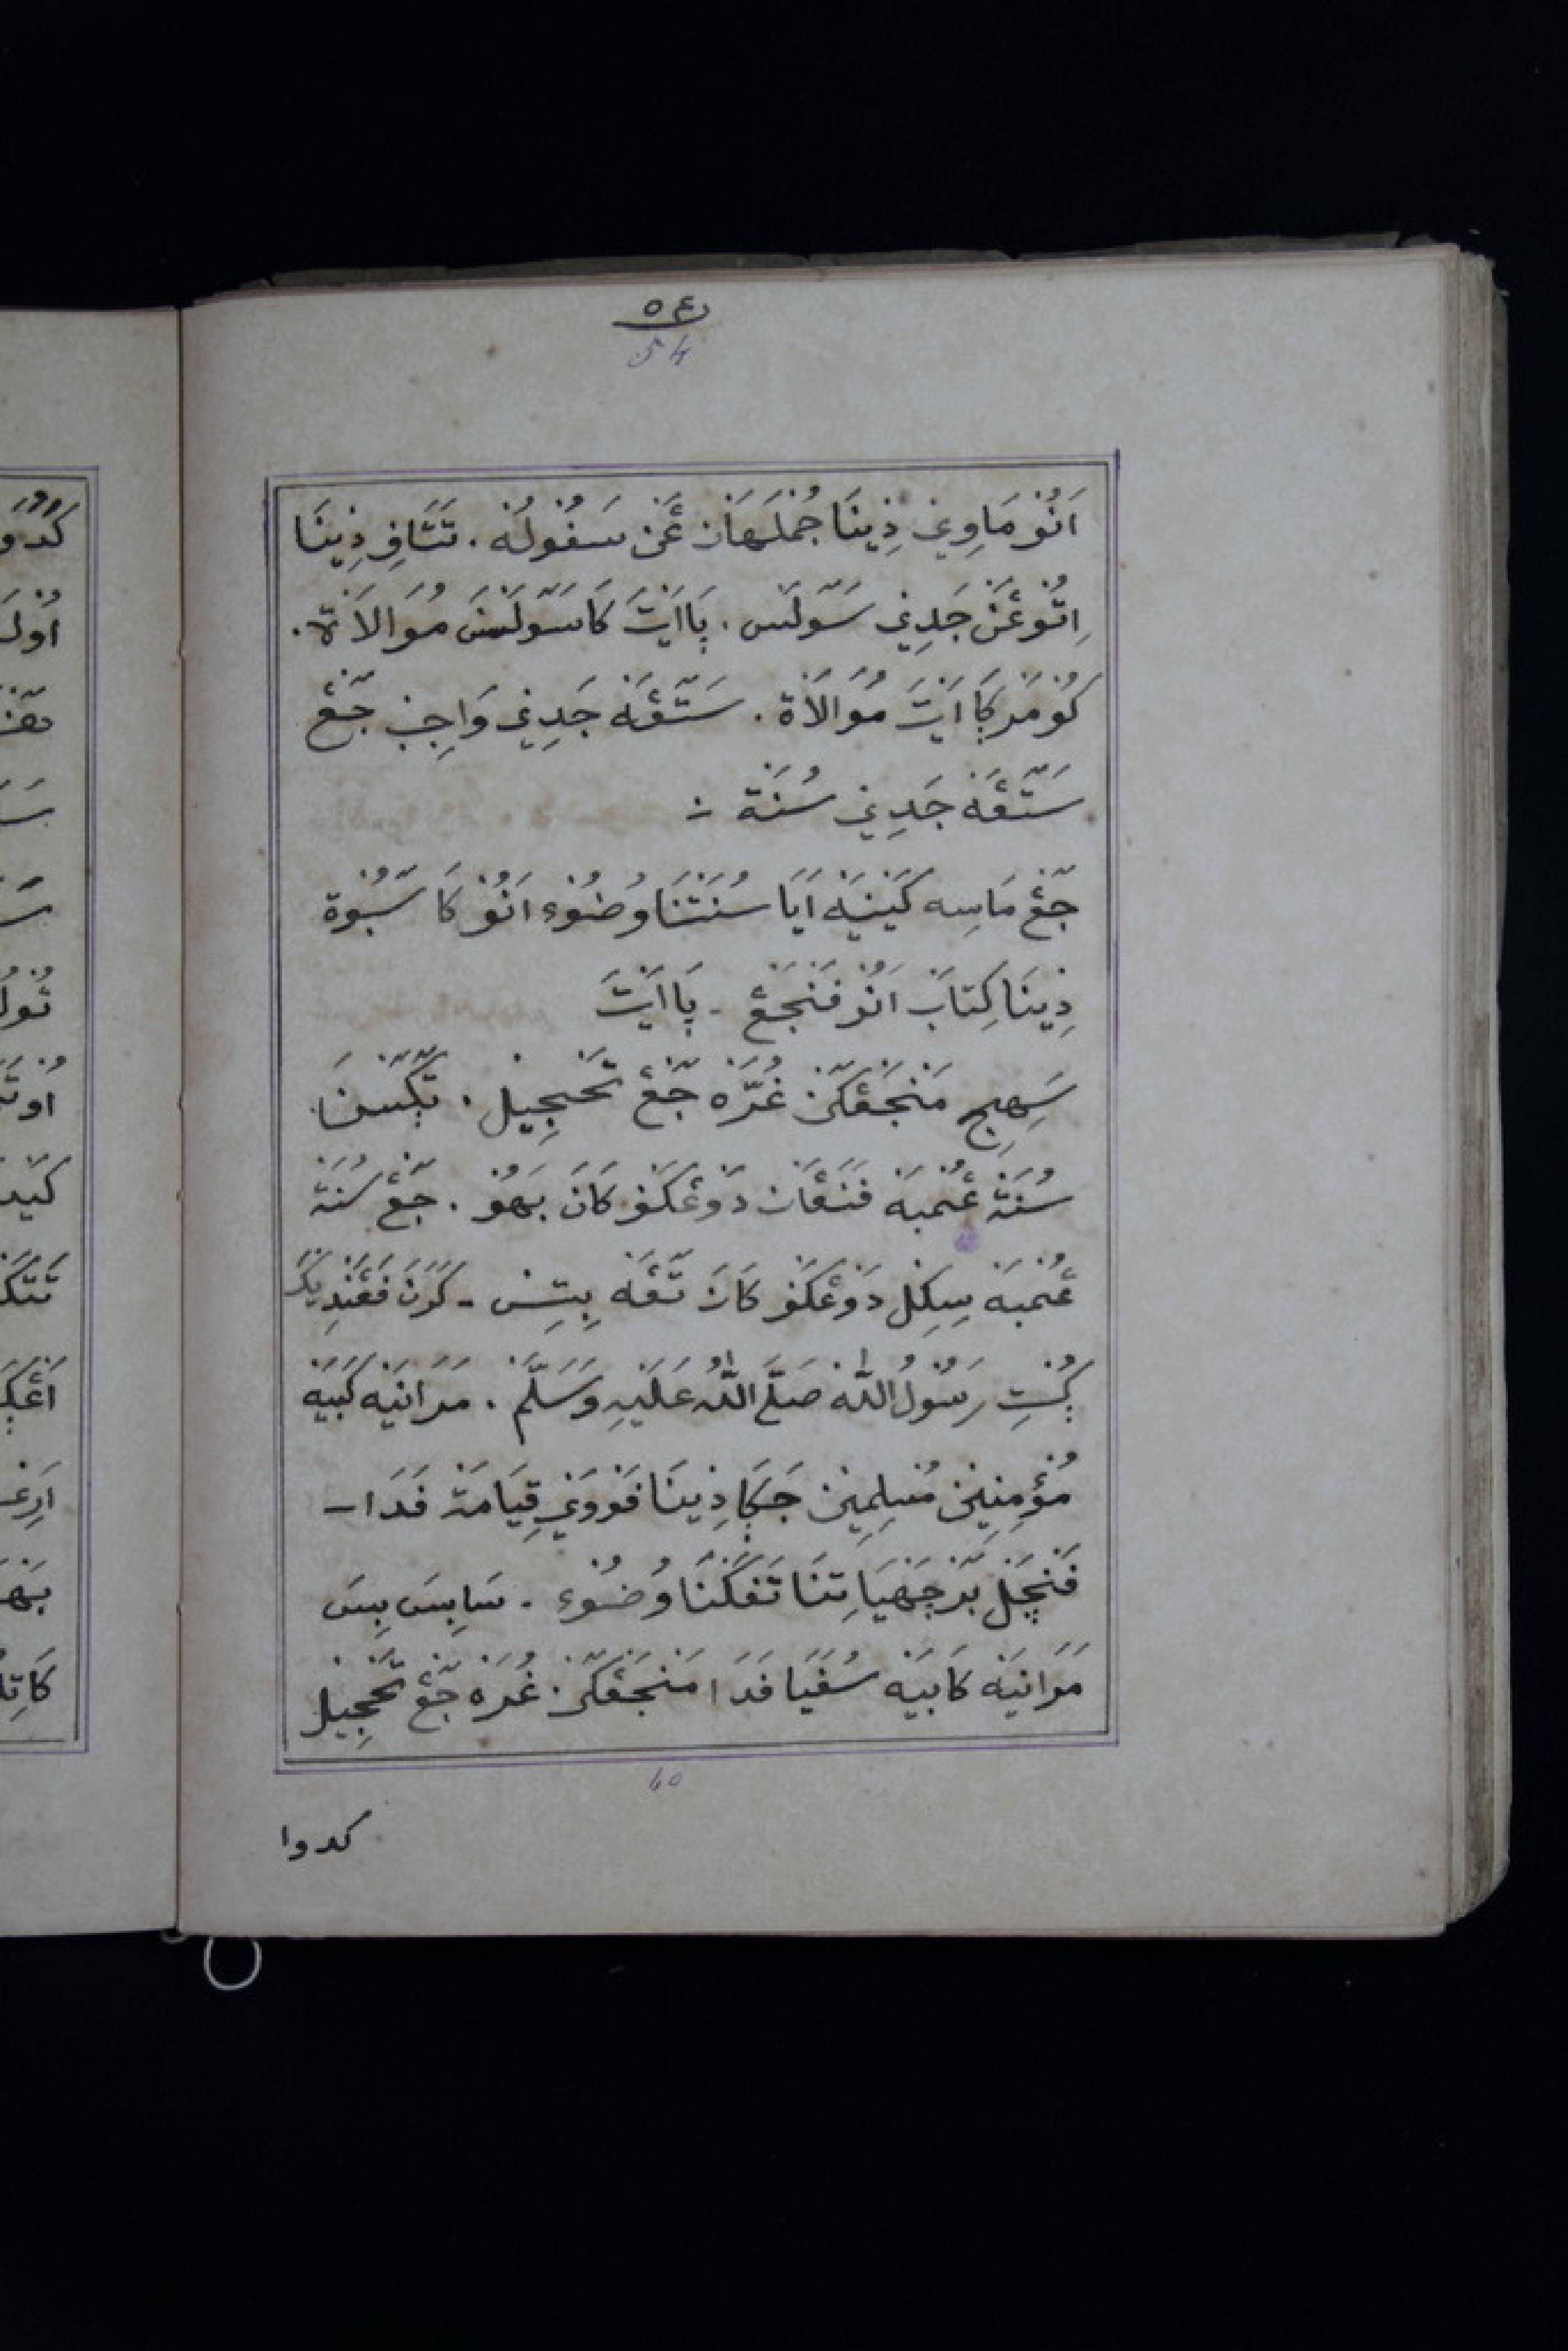 ٥٤
54
اَنُوْ مَاوِيْ ذِيْنَا جُمْلَهَانْ عَنْ سَفُوْلُهْ. تَتَافِ ذِيْنَا
اِتُوْ عَنْ جَدِيْ سَوْلَسْ. بَااَيْتَ كَاسَوْلَسْنَ مُوَالَاةْ.
كُوْمَرْكَا اَيْتَ مُوَالَاةْ. سَتَّڠَهْ جَدِيْ وَاجِبْ جَڠْ
سَتَّڠَهْ جَدِيْ سُنَةْ :
جَڠْ مَاسِه كَيْنِيَهْ اَيَا سُنَتْنَا وُضُوْءِ اَنُوْ كَا سَبُوْة
ذِيْنَا كِتَابْ اَنُوْ فَنْجَڠْ - بَااَيْتَ
سَهِجِ مَنْجَڠْكَنْ غُرَّهْ جَڠْ تَحْجِيْل. تَڬَسْنَا
سُنَةْ عُمْبَهْ فَنَڠَانْ دَوْعَكَنْ كَانَ بَهُوْ. جَڠْ سُنَةْ
عُمْبَهْ سِكِلْ دَوْعَكَنْ كَانَ تَڠَهْ بِتِسْ - كَرَنَ فَڠَنْدِيْكَ
كُسْتِ رَسُوْلُ اللّٰهْ صَلَّى اللّٰهُ عَلَيْهِ وَسَلَّمْ. مَرَانِيَهْ كَبَيَهْ
مُؤْمِنِيْنْ مُسْلِمِيْنْ جَكَا ذِيْنَا فَوْوَيْ قِيَامَةْ فَدَا -
فَنْچَلْ بَرْ چَهْيَا تِنَا تَفَكْنَا وُضُوْءِ. سَابِسَ بِسَ
مَرَانِيَهْ كَابَيَهْ سُفَيَا فَدَا مَنْجَڠْكَنْ غُرَهْ جَڠْ تَحْجِيْل
60
كدوا